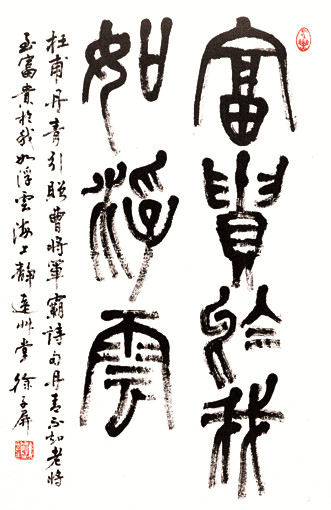 富貴於我
如浮雲
杜甫丹青引贈曹將軍霸詩句丹青不知老將
至富貴於我如浮雲海上靜遠艸堂徐子屏